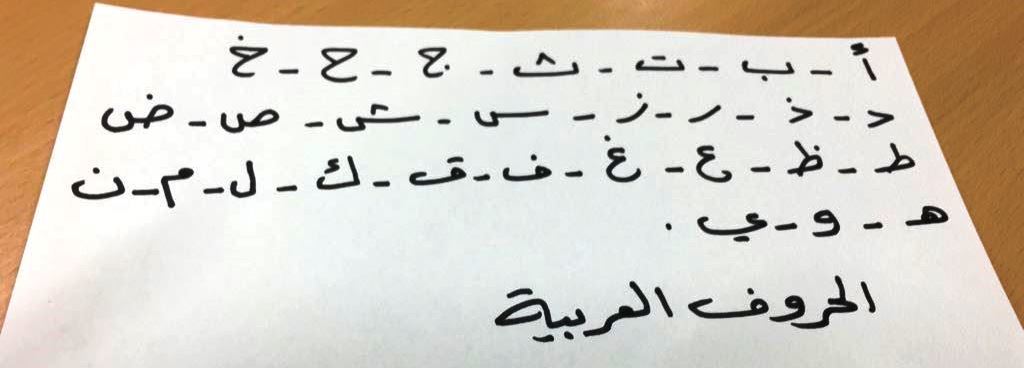 أ - ب - ت - ث - ج - ح - خ
د - ذ - ر - ز - س - ش - ص - ض
ط - ظ - ع - غ - ف - ق - ك - ل - م - ن
هـ - و - ي .
الحروف العربية